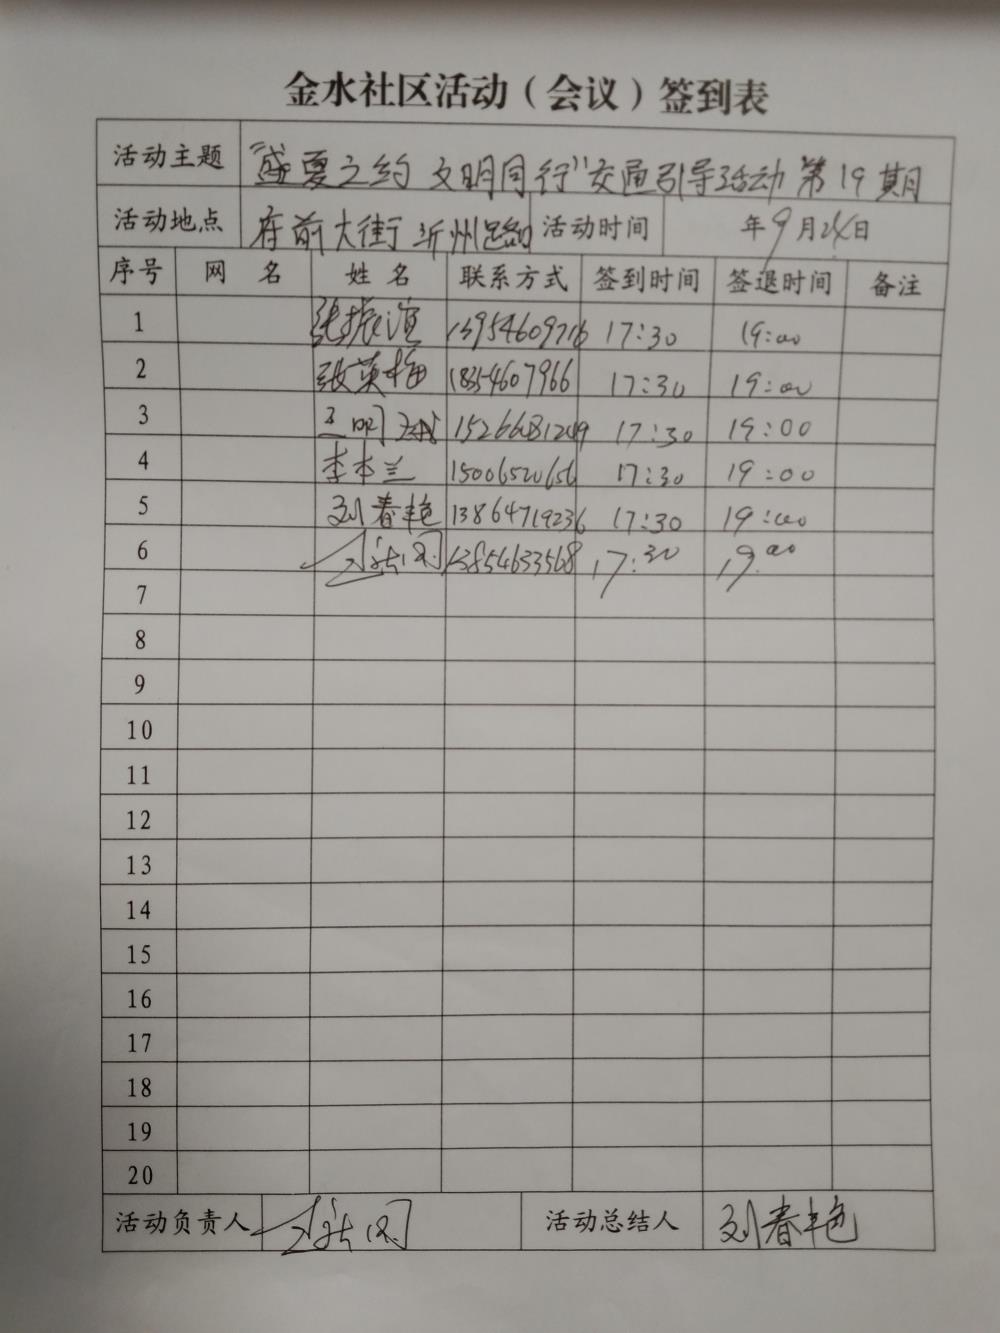 金水社区活动（会议）签到表
活动主题 “盛夏之约 文明同行”交通引导活动 第19期
活动地点 府前大街沂州路 活动时间 年9月24日
序号 网 名 姓 名 联系方式 签到时间 签退时间 备注
1 张振谊 13954609716 17:30 19:00
2 张英梅 18354607966 17:30 19:00
3 17:30 19:00
4 李本兰 15006520656 17:30 19:00
5 刘春艳 13864719236 17:30 19:00
6 13854633568 17:30 19:00
7
8
9
10
11
12
13
14
15
16
17
18
19
20
活动负责人 活动总结人 刘春艳